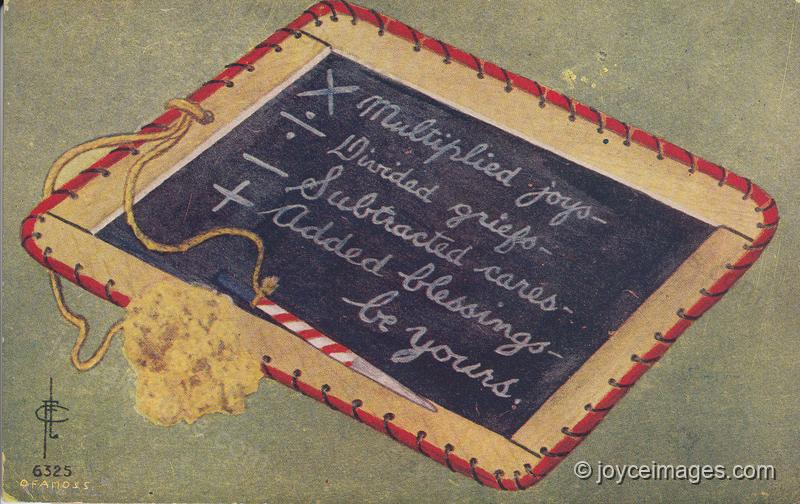 × Multiplied joys-
÷ Divided griefs-
− Subtracted cares-
+ Added blessings-
be yours.
6325
© joyceimages.com